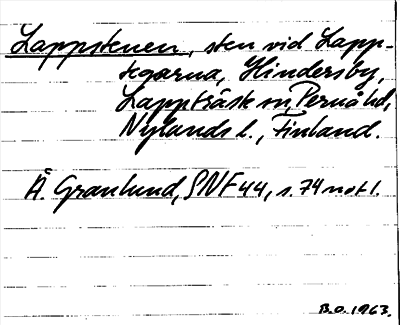 Lappstenen, sten vid Lapp-
tegarna, Hindersby,
Lappträsk sn, Pernå hd,
Nylands l., Finland.
Å. Granlund, SNF 44, s. 74 not 1.
B.O. 1963.